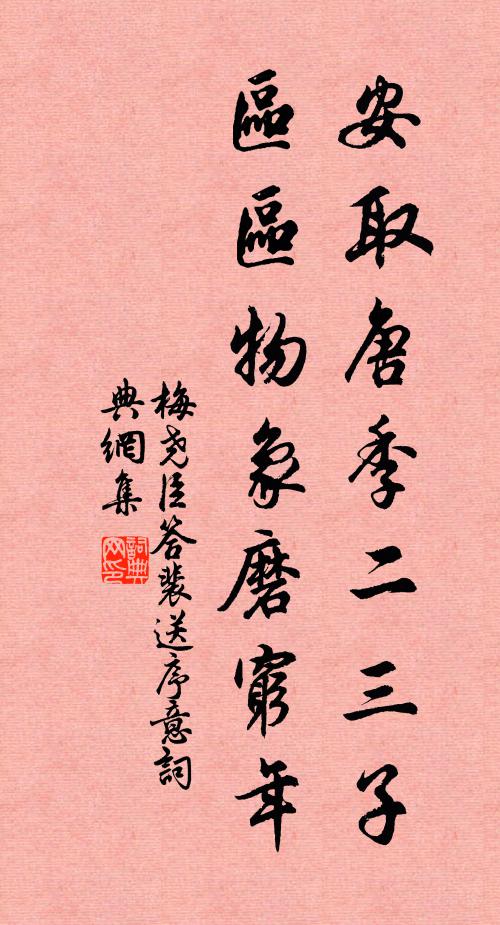 安取唐季二三子
區區物象磨窮年
梅堯臣答裴送序意詞
典網集
詞典
网印